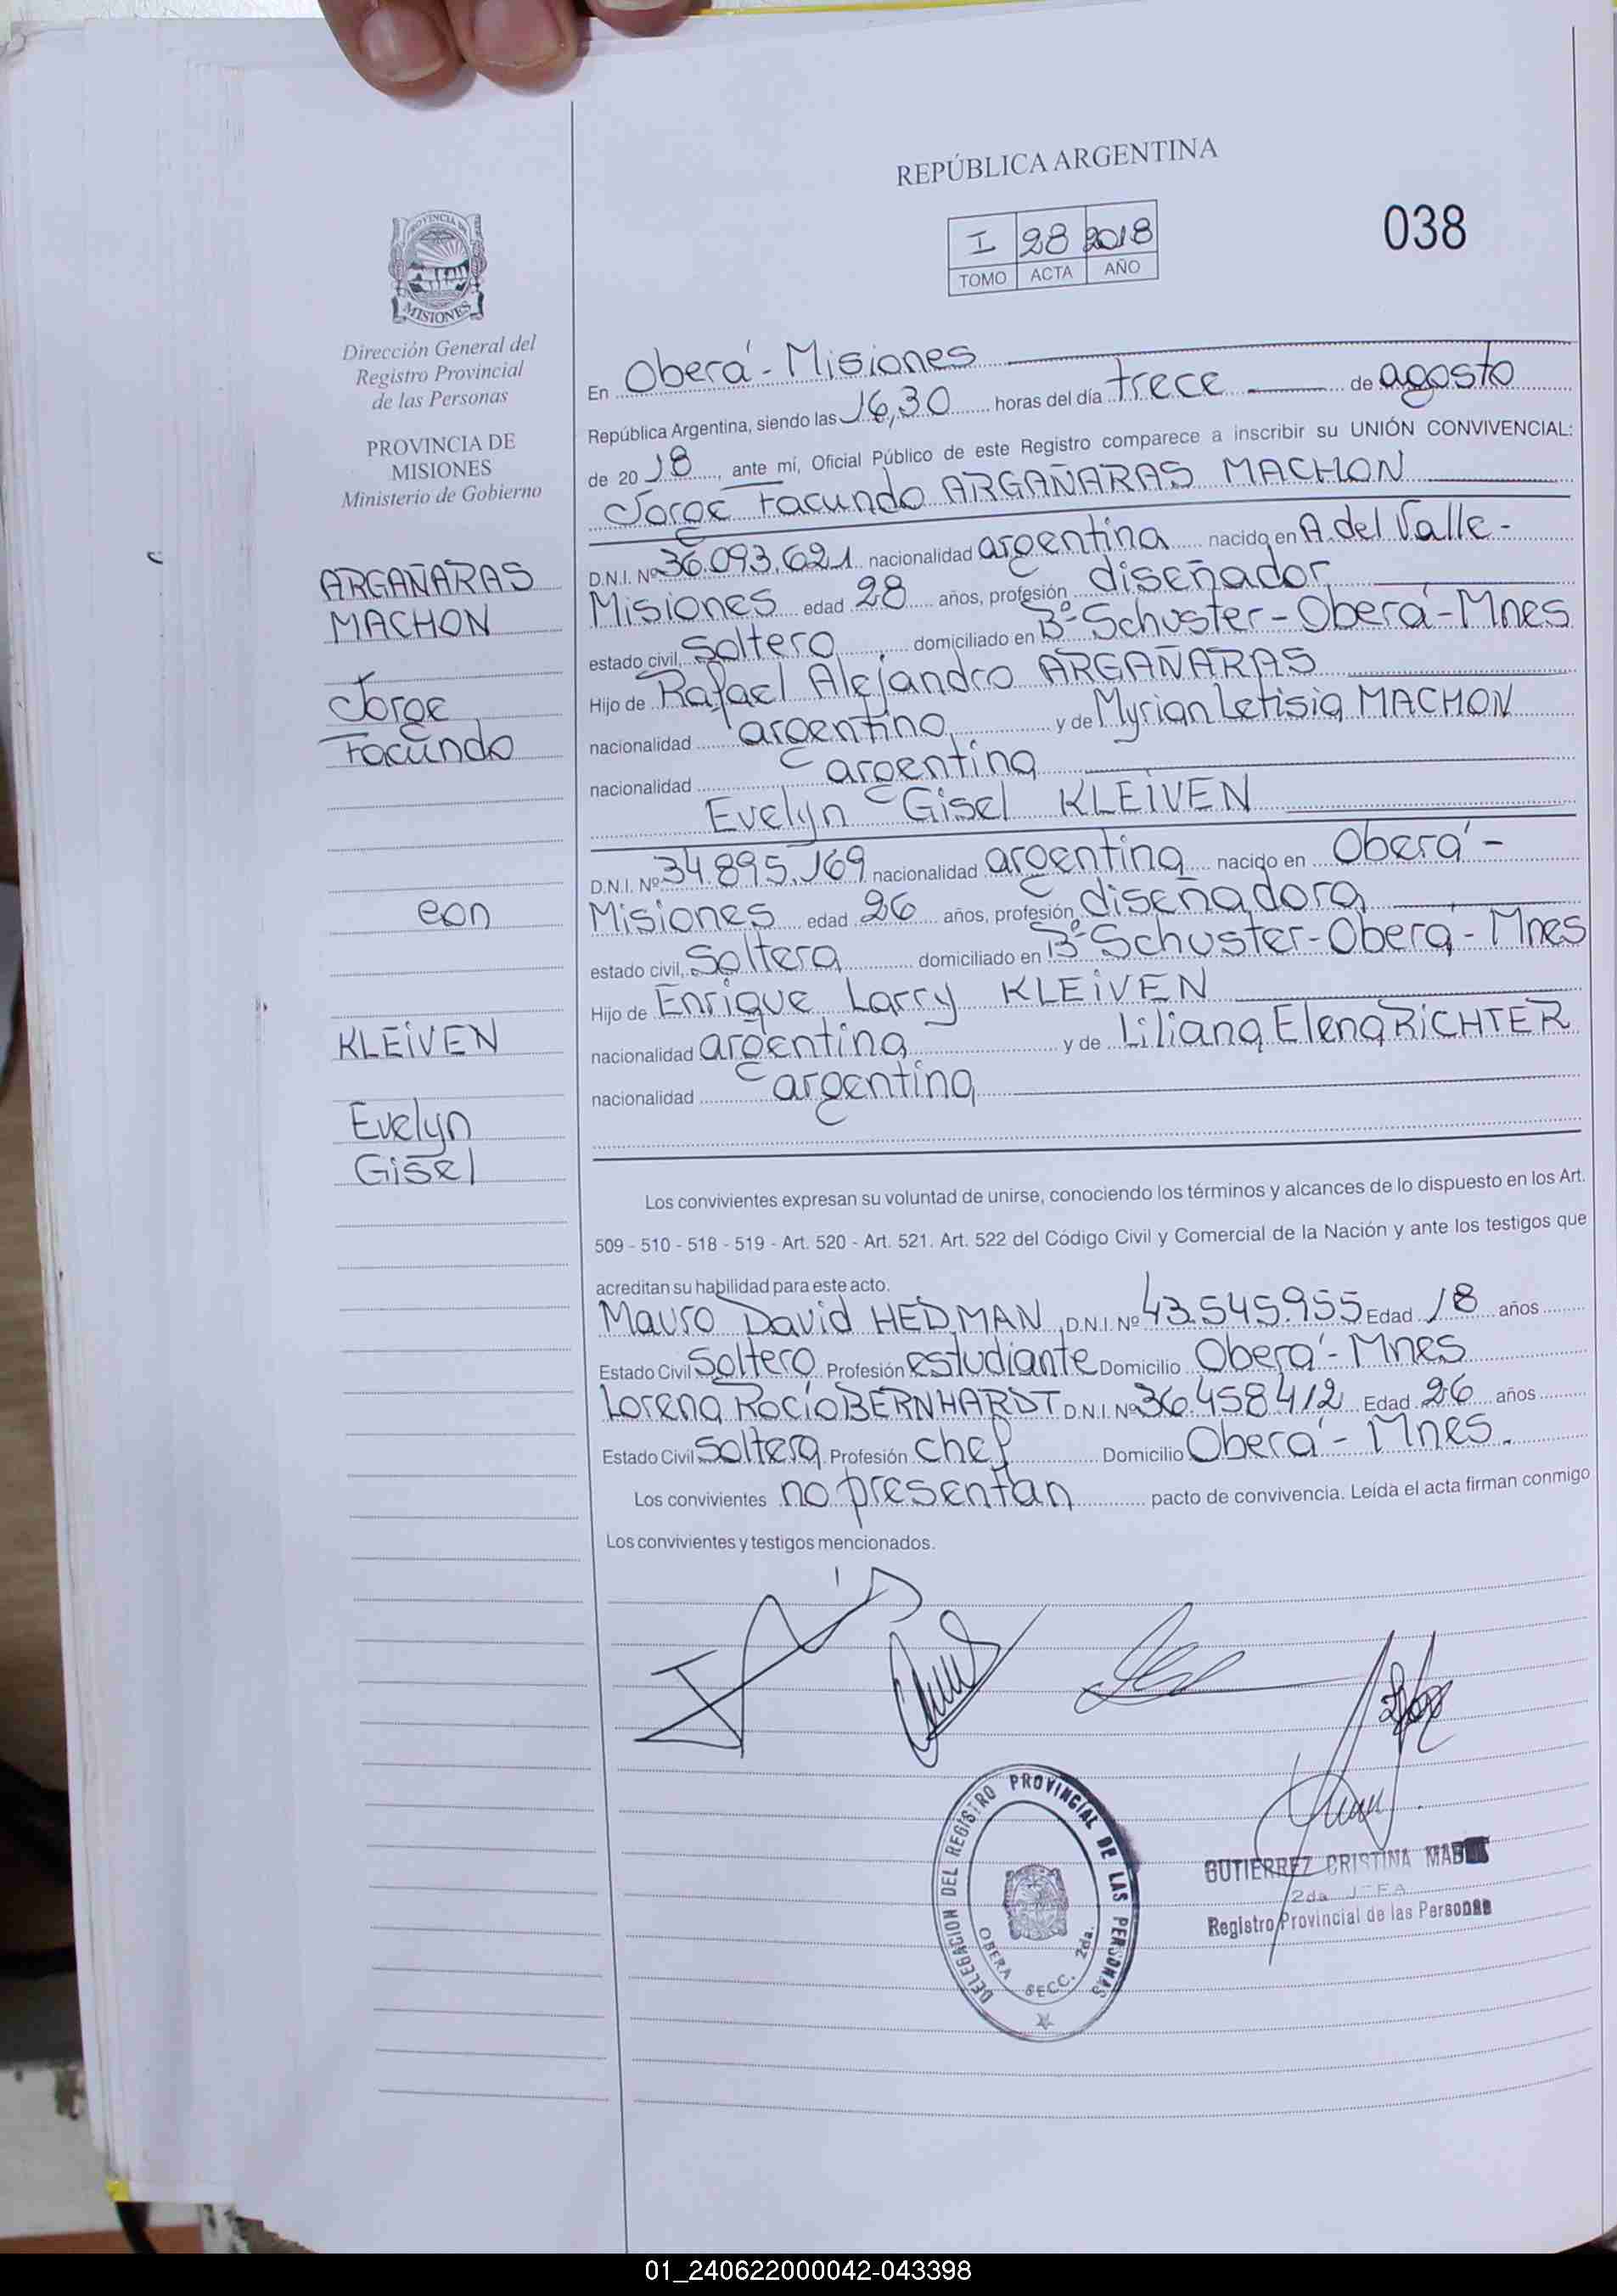 REPÚBLICA ARGENTINA
038
I 28 2018
TOMO ACTA AÑO
PROVINCIA DE
MISIONES
Dirección General del
Registro Provincial
de las Personas
PROVINCIA DE
MISIONES
Ministerio de Gobierno
ARGAÑARAS
MACHON
Jorge
Facundo
con
KLEIVEN
Evelyn
Gisel
En Oberá - Misiones
República Argentina, siendo las 16,30 horas del día trece de agosto
de 2018, ante mí, Oficial Público de este Registro comparece a inscribir su UNIÓN CONVIVENCIAL:
Jorge Facundo ARGAÑARAS MACHON
D.N.I. Nº 36.093.621 nacionalidad argentina nacido en A. del Valle -
Misiones edad 28 años, profesión diseñador
estado civil, Soltero domiciliado en Bº Schuster - Oberá - Mnes
Hijo de Rafael Alejandro ARGAÑARAS
nacionalidad argentino y de Myrian Letisia MACHON
nacionalidad argentina
Evelyn Gisel KLEIVEN
D.N.I. Nº 34.895.169 nacionalidad argentina nacido en Oberá -
Misiones edad 26 años, profesión diseñadora
estado civil, Soltera domiciliado en Bº Schuster - Oberá - Mnes
Hijo de Enrique Larry KLEIVEN
nacionalidad argentina y de Liliana Elena RICHTER
nacionalidad argentina
Los convivientes expresan su voluntad de unirse, conociendo los términos y alcances de lo dispuesto en los Art.
509 - 510 - 518 - 519 - Art. 520 - Art. 521. Art. 522 del Código Civil y Comercial de la Nación y ante los testigos que
acreditan su habilidad para este acto.
Mauro David HEDMAN D.N.I. Nº 43.545.955 Edad 18 años
Estado Civil Soltero Profesión estudiante Domicilio Oberá - Mnes
Lorena Rocío BERNHARDT D.N.I. Nº 36.458412 Edad 26 años
Estado Civil Soltera Profesión chef Domicilio Oberá - Mnes.
Los convivientes no presentan pacto de convivencia. Leída el acta firman conmigo
Los convivientes y testigos mencionados.
DELEGACION DEL REGISTRO PROVINCIAL DE LAS PERSONAS
OBERA SECC. 2da.
GUTIERREZ CRISTINA
2da JEFA
Registro Provincial de las Personas
01_240622000042-043398